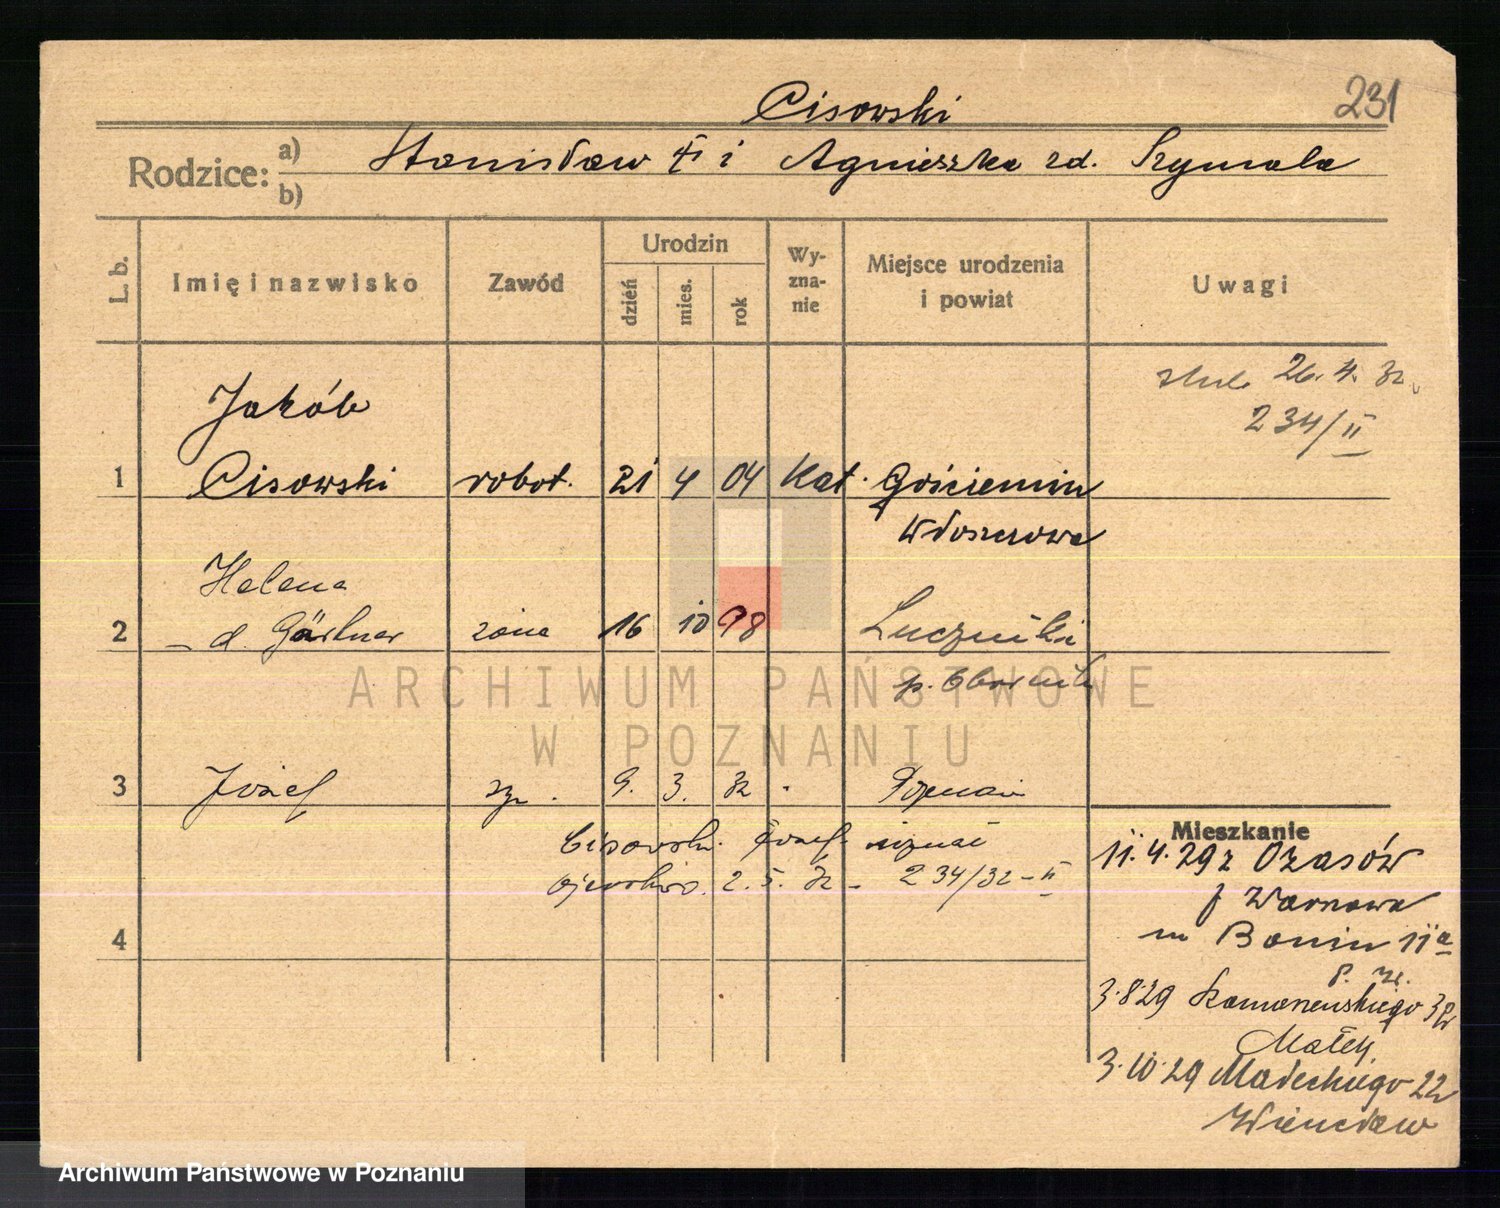 Cisowski
231
Rodzice: a) Stanisław † i Agnieszka zd. Szymala
b)
L. b.
Imię i nazwisko
Zawód
Urodzin
dzień
mies.
rok
Wy-
zna-
nie
Miejsce urodzenia
i powiat
Uwagi
ślub 26. 4. 32.
234/II
Jakób
1 Cisowski robot. 21 4 04 Kat. Gościemin
Włoszczowa
Helena
2 – d. Gärtner żona 16 10 98 Luczniki
p. Obornik
3 Józef syn. 9. 3. 32 Poznań
Cisowski Józef uznać
ojcostwo. 2. 5. 32 – 234/32 – II
4
Mieszkanie
11.4.29 z Ozasów
p Warnowa
m Bonin 11a
3.8.29 3
Małeck.
3.10.29 Małeckiego 22
Wiencław
ARCHIWUM PAŃSTWOWE
W POZNANIU
Archiwum Państwowe w Poznaniu